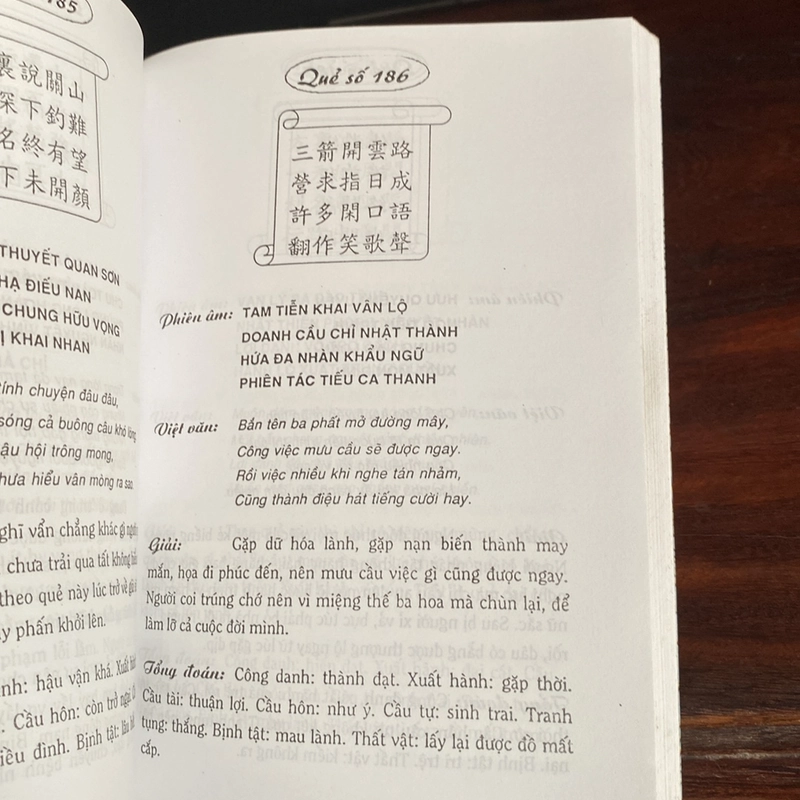 185
裏說關山
深下釣難
名終有望
下未開顏
THUYẾT QUAN SƠN
HẠ ĐIẾU NAN
CHUNG HỮU VỌNG
KHAI NHAN
tính chuyện đâu đâu,
sóng cả buông câu khó lòng
hội trông mong,
hiểu vân mòng ra sao
vẩn chẳng khác gì
chưa trải qua tất không
theo quẻ này lúc trở về
phấn khởi lên.
hậu vận khá. Xuất
Cầu hôn: còn trở
đình. Bịnh tật:
Quẻ số 186
三箭開雲路
營求指日成
許多閑口語
翻作笑歌聲
Phiên âm: TAM TIỄN KHAI VÂN LỘ
DOANH CẦU CHỈ NHẬT THÀNH
HỨA ĐA NHÀN KHẨU NGỮ
PHIÊN TÁC TIẾU CA THANH
Việt văn: Bắn tên ba phất mở đường mây,
Công việc mưu cầu sẽ được ngay.
Rồi việc nhiều khi nghe tán nhảm,
Cũng thành điệu hát tiếng cười hay.
Giải: Gặp dữ hóa lành, gặp nạn biến thành may
mắn, họa đi phúc đến, nên mưu cầu việc gì cũng được ngay.
Người coi trúng chớ nên vì miệng thế ba hoa mà chùn lại, để
làm lỡ cả cuộc đời mình.
Tổng đoán: Công danh: thành đạt. Xuất hành: gặp thời.
Cầu tài: thuận lợi. Cầu hôn: như ý. Cầu tự: sinh trai. Tranh
tụng: thắng. Bịnh tật: mau lành. Thất vật: lấy lại được đồ mất
cắp.